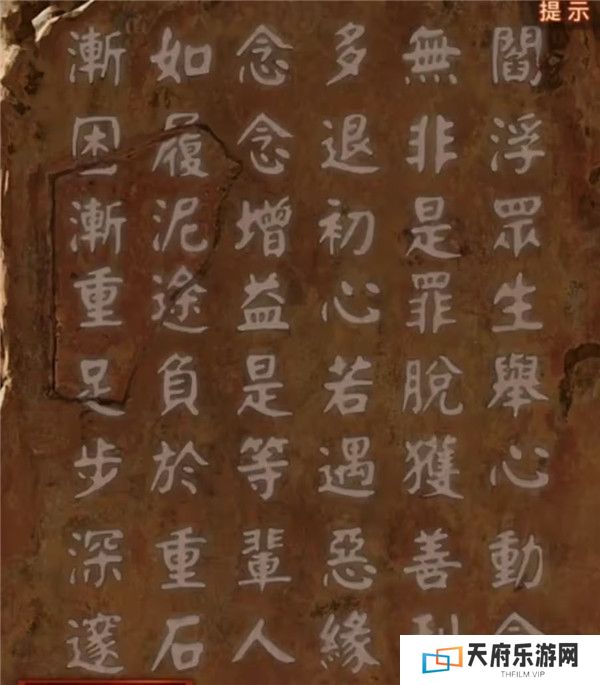 提示
閻浮眾生舉心動
無非是罪脫獲善
多退初心若遇惡緣
念念增益是等輩人
如履泥途負於重石
漸困漸重足步深邃
天府乐游网
THFILM.VIP